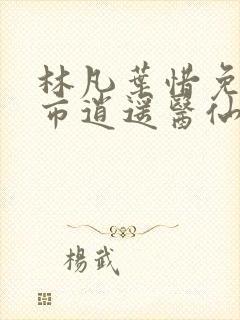 林凡葉惜免
市逍遥醫仙
楊武